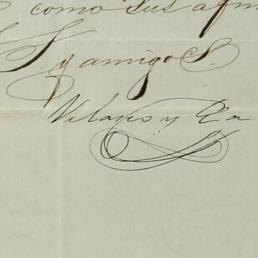 como sus afmo
S. y amigo S.
Velasco y Ca